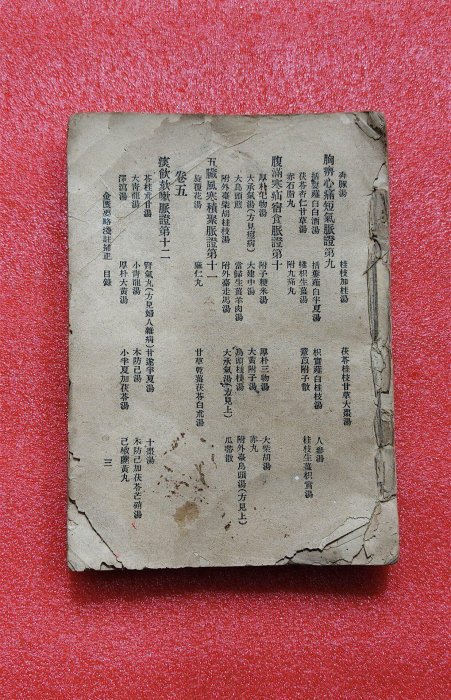 奔豚湯 桂枝加桂湯 茯苓桂枝甘草大棗湯
胸痹心痛短氣脈證第九
括蔞薤白白酒湯 括蔞薤白半夏湯 枳實薤白桂枝湯 人參湯
茯苓杏仁甘草湯 橘枳生薑湯 薏苡附子散 桂枝生薑枳實湯
赤石脂丸 附九痛丸
腹滿寒疝宿食脈證第十
厚朴七物湯 附子粳米湯 厚朴三物湯 大柴胡湯
大承氣湯(方見痙病) 大建中湯 大黃附子湯 赤丸
大烏頭煎 當歸生薑羊肉湯 烏頭桂枝湯 附外臺烏頭湯(方見上)
附外臺柴胡桂枝湯 附外臺走馬湯 大承氣湯(方見上) 瓜蒂散
五臟風寒積聚脈證第十
旋覆花湯 麻仁丸 甘草乾薑茯苓白朮湯
卷五
痰飲欬嗽脈證第十二
苓桂朮甘湯 腎氣丸(方見婦人雜病) 甘遂半夏湯 十棗湯
大青龍湯 小青龍湯 木防己湯 木防己加茯苓芒硝湯
澤瀉湯 厚朴大黃湯 小半夏加茯苓湯 己椒藶黃丸
金匱要略淺註補正 目錄 三